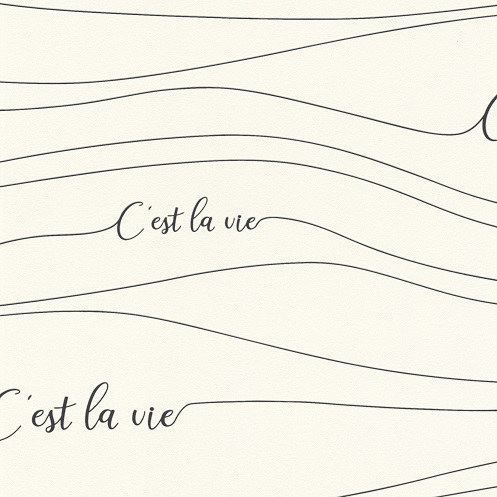 C'est la vie
C'est la vie